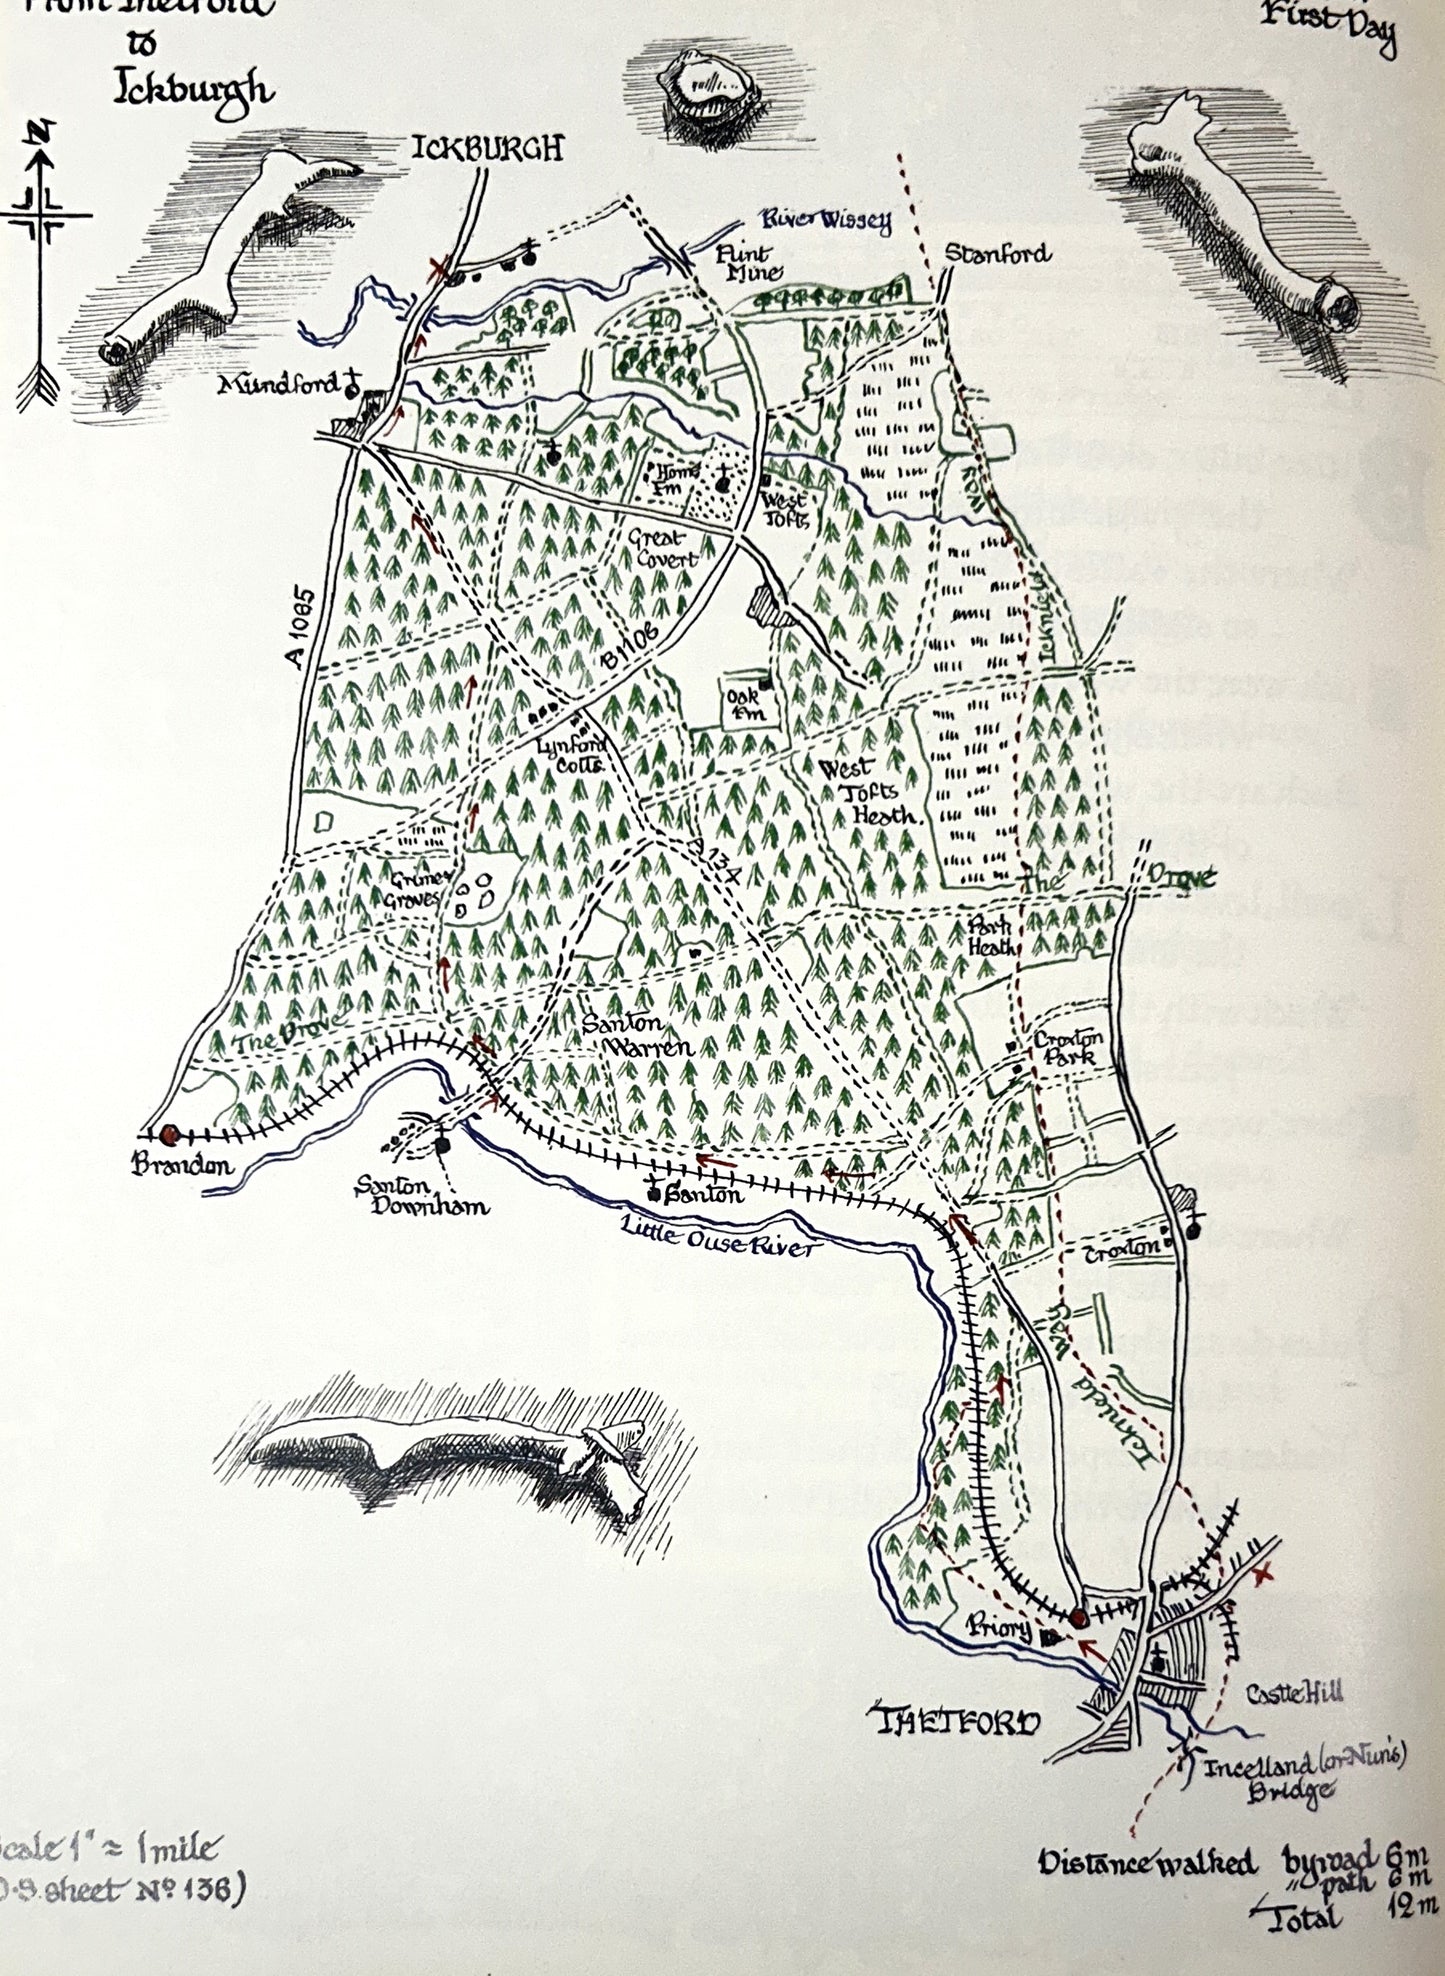 From Thetford
to
Ickburgh
First Day
N
ICKBURGH
River Wissey
Flint
Mine
Stanford
Mundford
Home
Fm
West
Tofts
Way
Great
Covert
A 1065
B1106
Icknield
Oak
Fm
Lynford
Cotts.
West
Tofts
Heath.
A 134
Grimes
Graves
The
Drove
Park
Heath
The Drove
Santon
Warren
Croxton
Park
Brandon
Santon
Downham
Santon
Little Ouse River
Croxton
Way
Icknield
Priory
THETFORD
Castle Hill
Incelland (or Nun's)
Bridge
Scale 1" ≈ 1 mile
O.S. sheet Nº 136)
Distance walked by road 6m
" path 6m
Total 12m